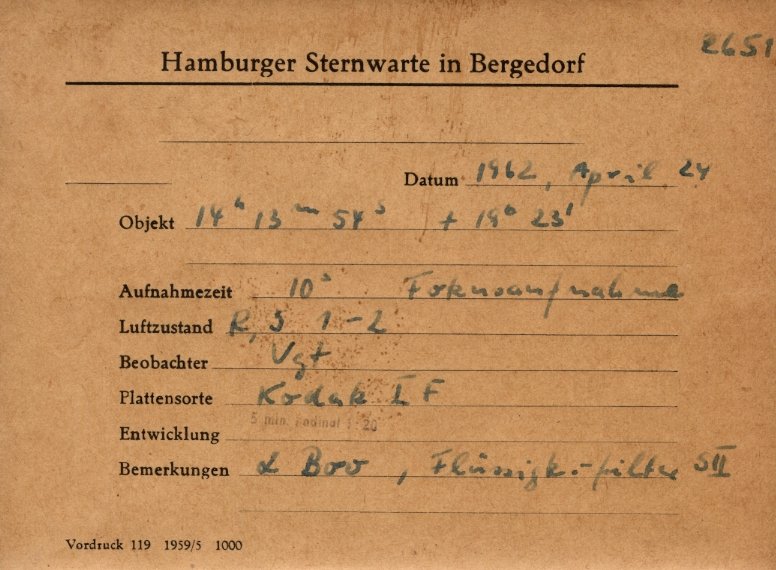 2651
Hamburger Sternwarte in Bergedorf
Datum 1962, April 24
Objekt 14h 13m 54s + 19° 23'
Aufnahmezeit 10s Fokusaufnahme
Luftzustand R, S 1-2
Beobachter Vgt
Plattensorte Kodak I F
5 min. Rodinal 1:20
Entwicklung
Bemerkungen α Boo, Flüssigk.-filter SII
Vordruck 119 1959/5 1000